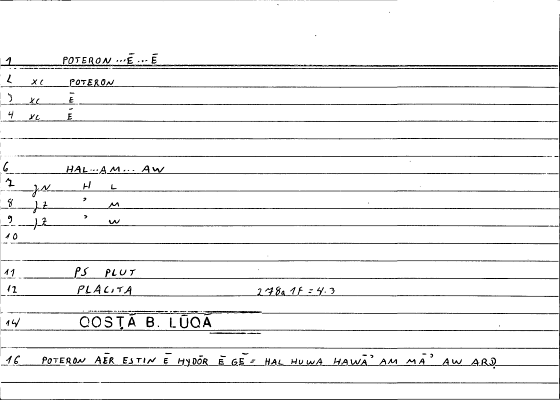 1 POTERON ... Ē ... Ē
2 xc POTERON
3 xc Ē
4 xc Ē
6 HAL...AM... AW
7 JN H L
8 JZ ʾ M
9 JZ ʾ W
10
11 PS PLUT
12 PLACITA 278a 1F = 4.3
14 QOSṬĀ B. LŪQĀ
16 POTERON AĒR ESTIN Ē HYDŌR Ē GĒ = HAL HUWA HAWĀʾ AM MĀʾ AW ARḌ